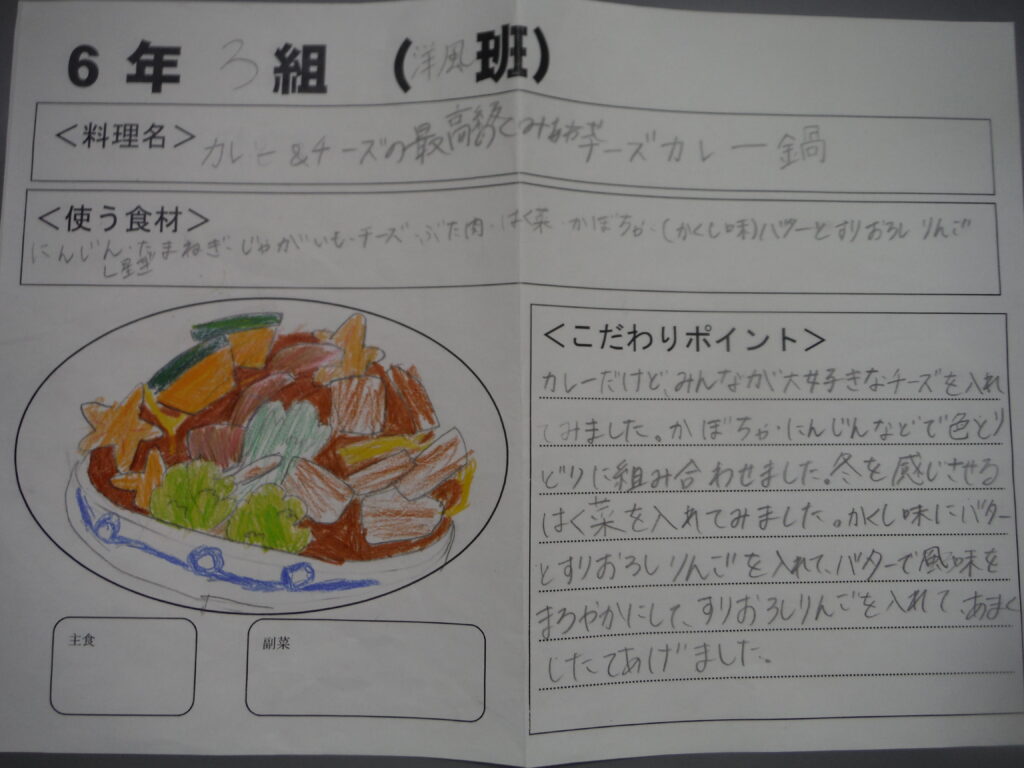 6年 3組 (洋風班)
<料理名> カレー&チーズの最高 くみあわせ チーズカレー鍋
<使う食材>
にんじん・たまねぎ・じゃがいも・チーズ・ぶた肉・はく菜・かぼちゃ・(かくし味)バターとすりおろしりんご
<こだわりポイント>
カレーだけど、みんなが大好きなチーズを入れ
てみました。かぼちゃ・にんじんなどで色とり
どりに組み合わせました。冬を感じさせる
はく菜を入れてみました。かくし味にバター
とすりおろしりんごを入れて、バターで風味を
まろやかにして、すりおろしりんごを入れて、あまく
したてあげました。
主食
副菜